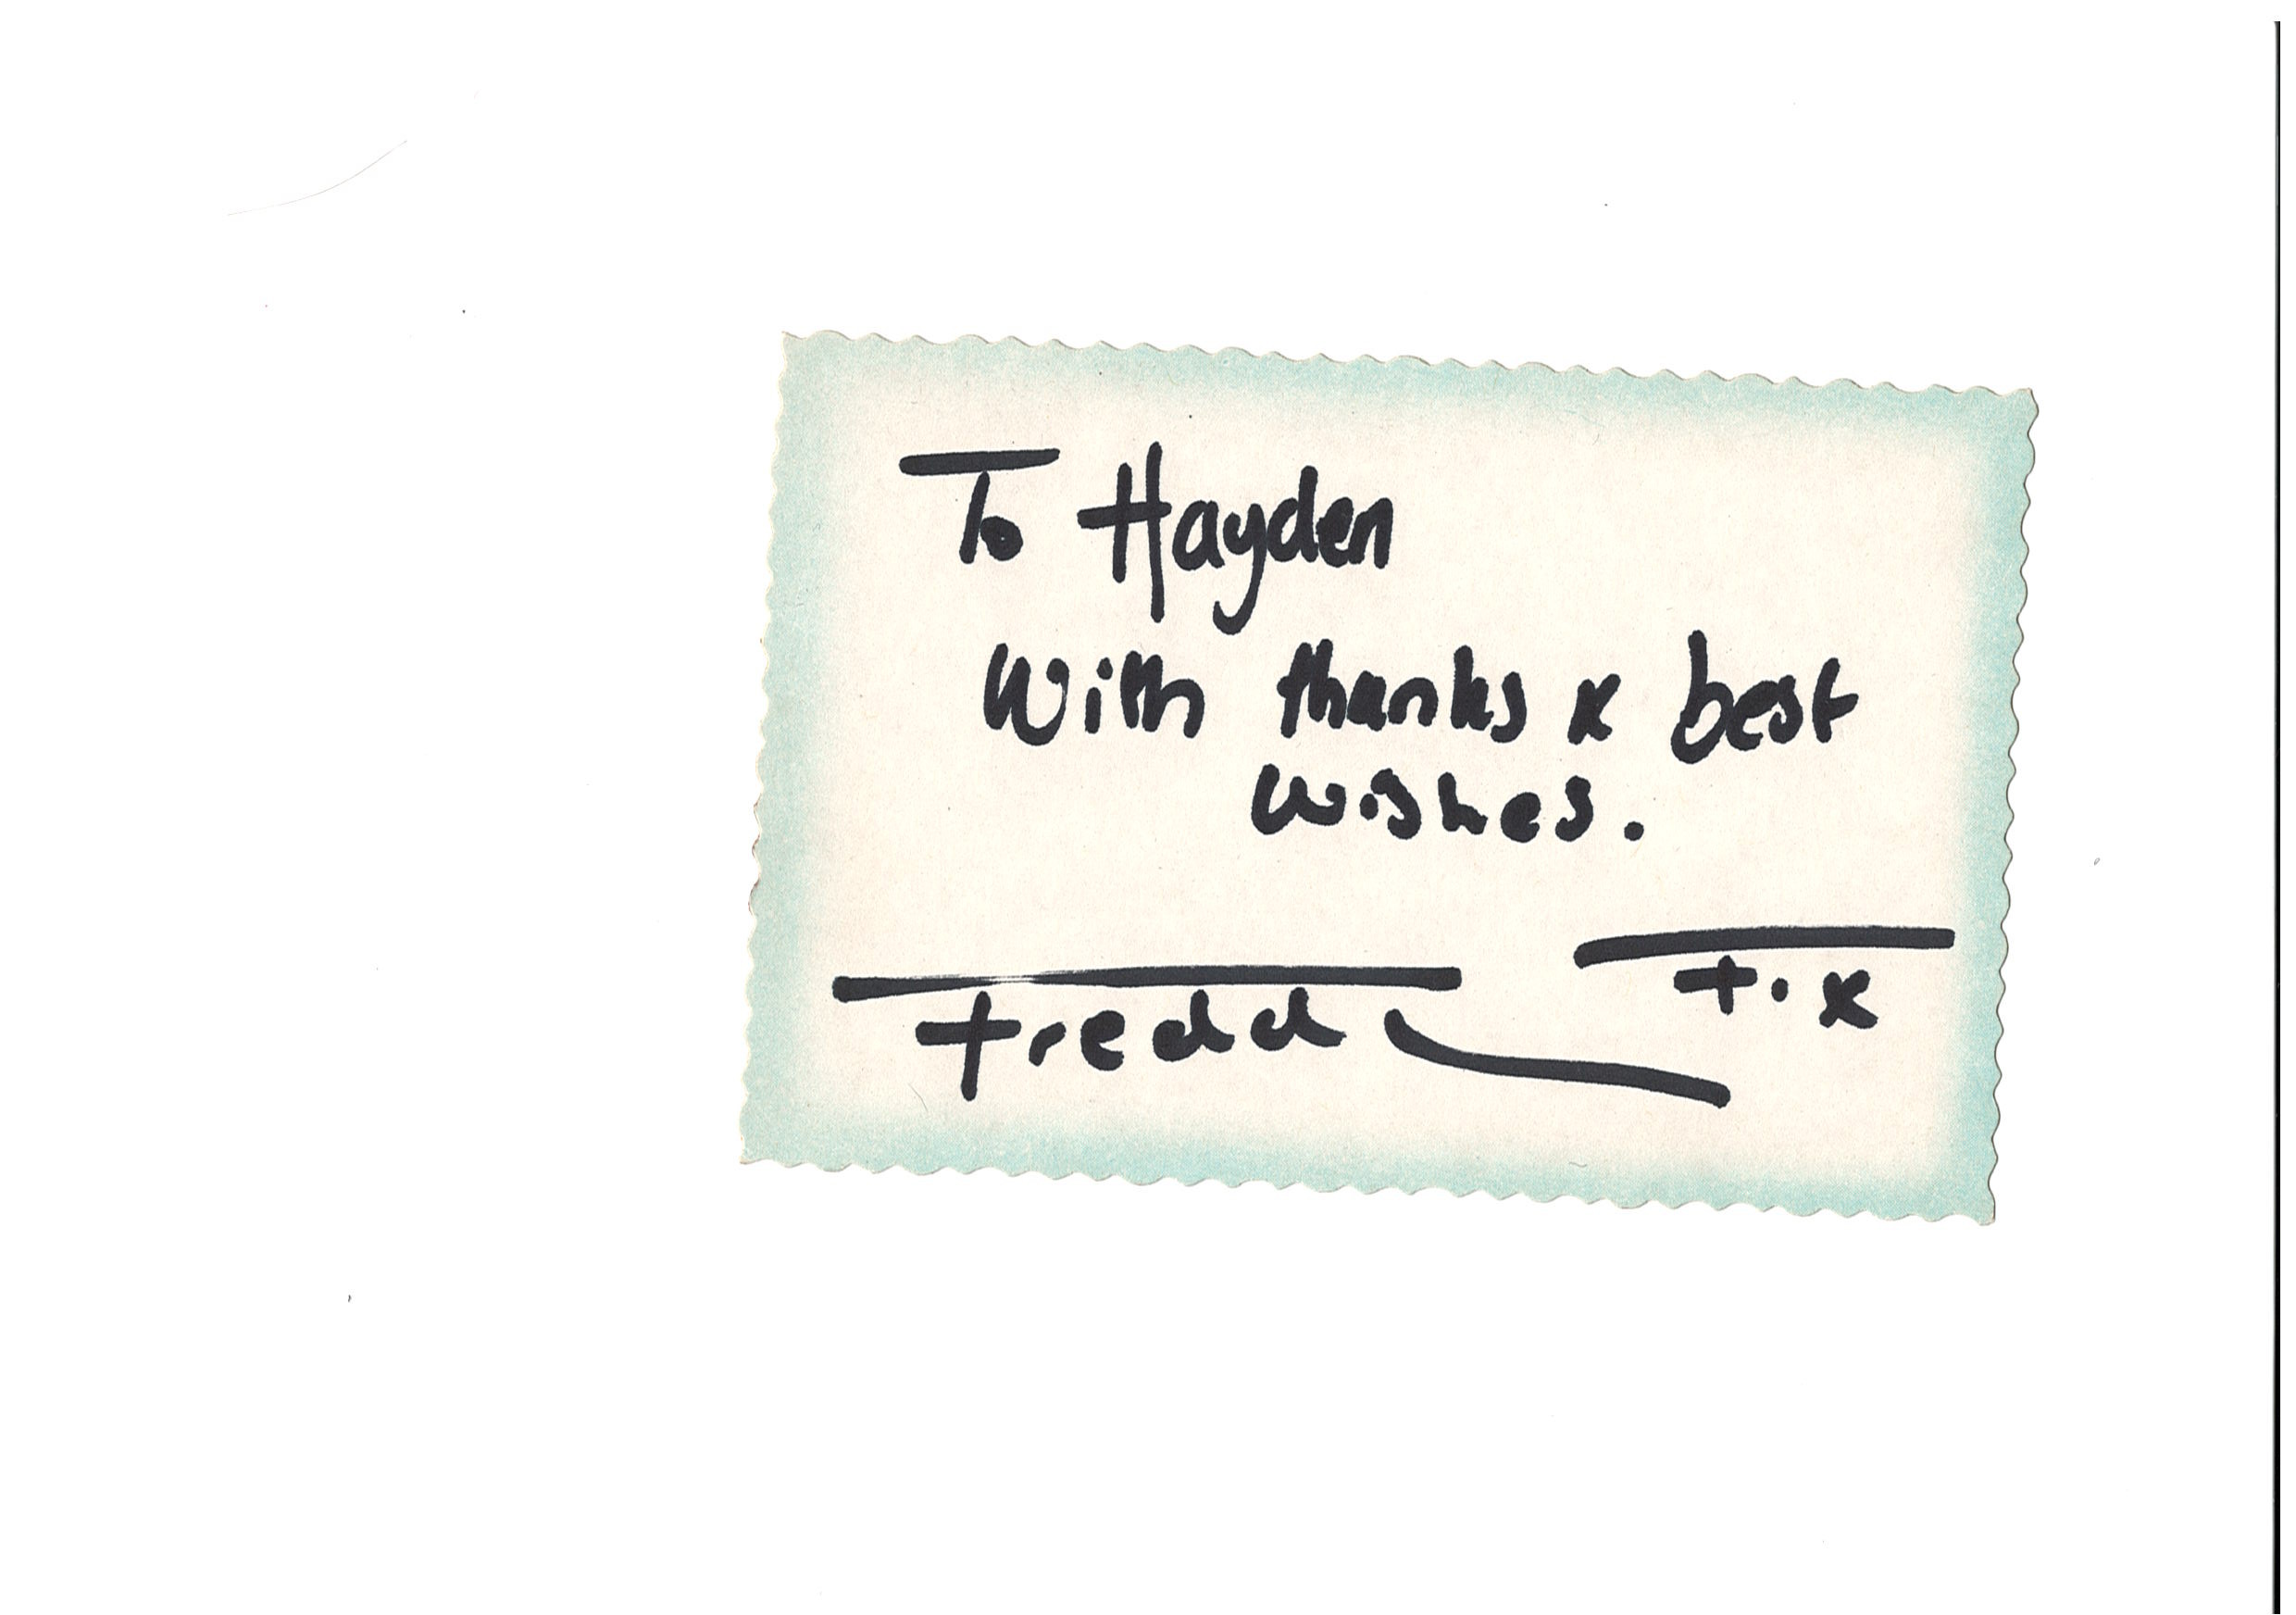 To Hayden
With thanks x best
wishes.
Freddy F.x